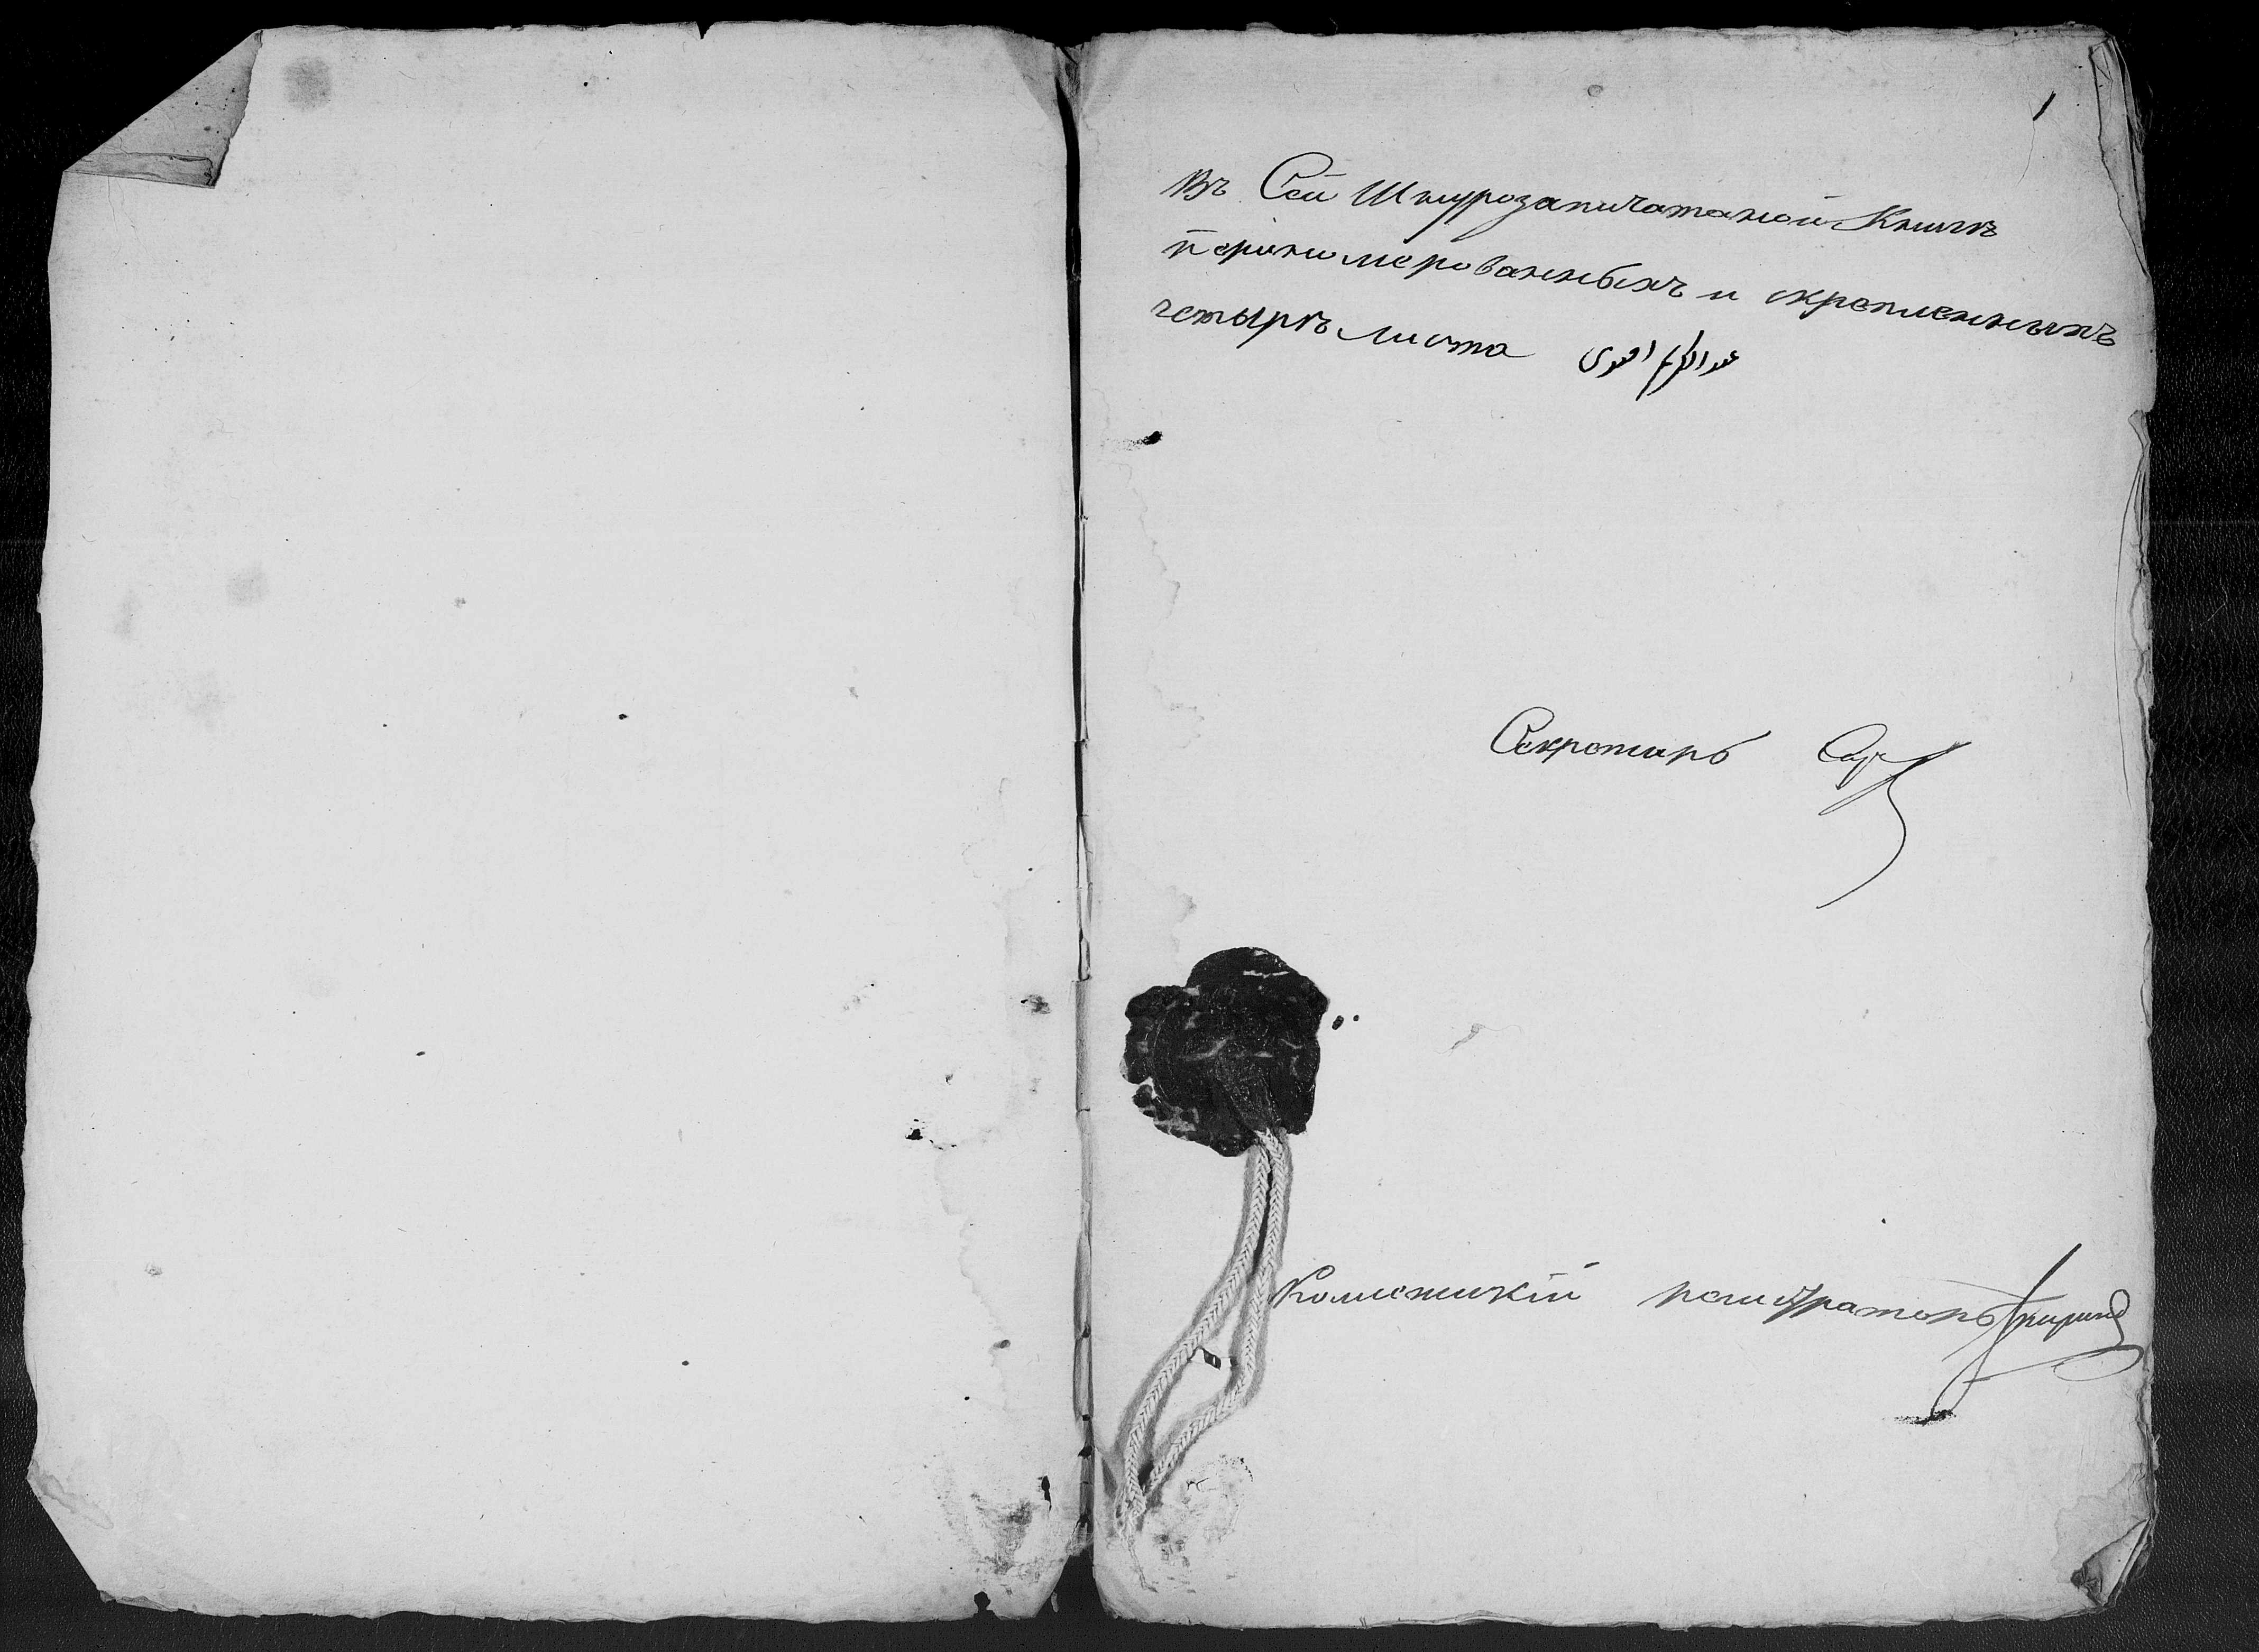 1
Въ Сей Шнурозапичатаной Книгѣ
перино мерованныхъ и скрепленныхъ
четырѣ листа
Секретарь
Колежский регистраторъ